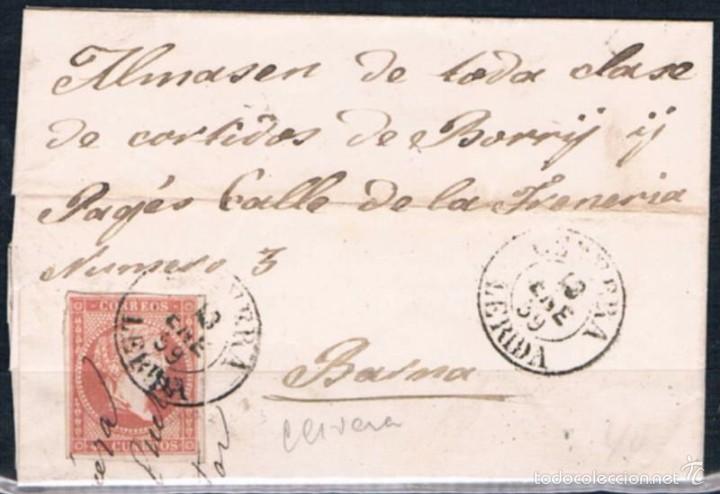 Almasen de toda clase
de cortidos de Borrij ij
Pagés Calle de la Freneria
Numero 3
CERVERA
13
ENE
59
LERIDA
CERVERA
13
ENE
59
LERIDA
CORREOS
Barna
4 CUARTOS
Cervera
todocoleccion